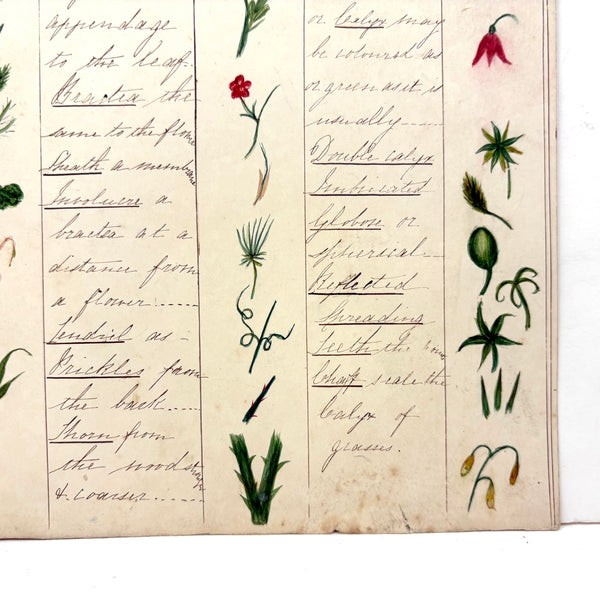 appendage
to the leaf-
Bractea the
same to the flower
Sheath a membrane
Involucre a
bractea at a
distance from
a flower:----
Tendril as-
Prickles from
the bark----
Thorn from
the wood stronger
& coarser-----
or Calyx may
be coloured as
or green as it is
usually-----
Double calyx
Imbricated
Globose or
spherical-
Reflected
Spreading
Teeth the
Chaff scale the
Calyx of
grasses.